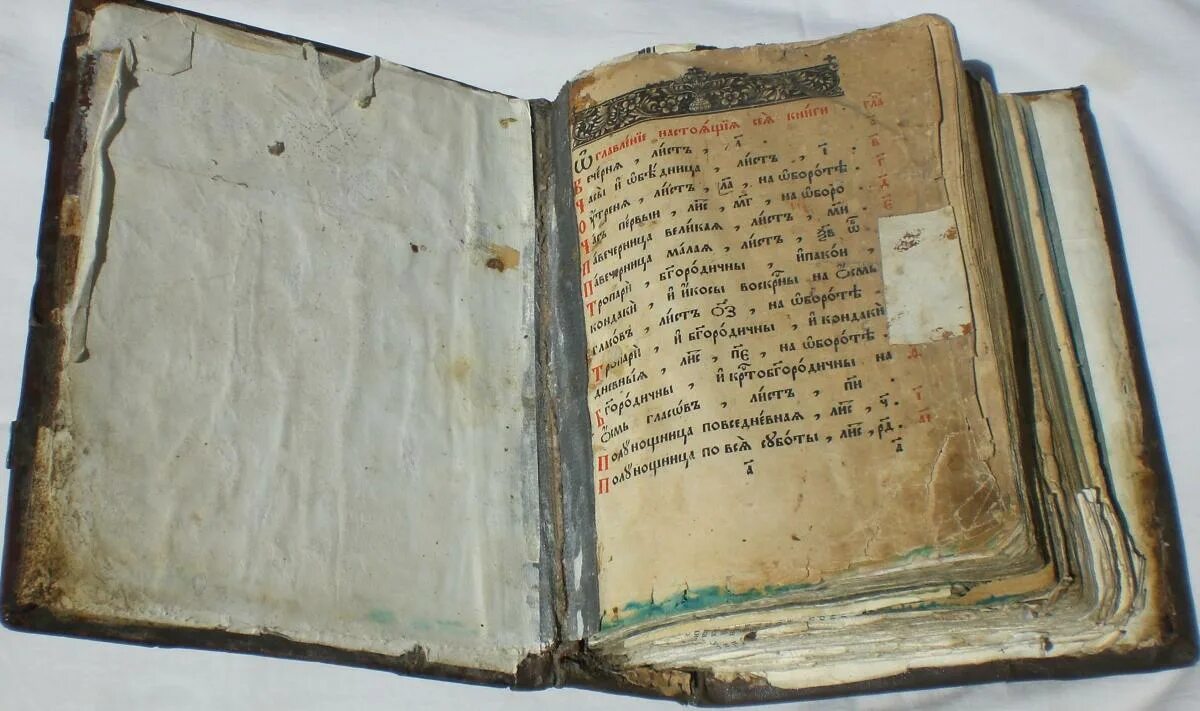 Ѡглавле́нїе настоѧ́щїѧ сеѧ̀ кни́ги гла҃
Вече́рнѧ , ли́стъ , а҃ .
Часы̀ и҆ ѡ҆бѣ́дница , ли́стъ . і҃ . в҃
Оу҆́тренѧ , ли́стъ , ла҃ , на ѡ҆боро́тѣ . г҃
Ча́съ пе́рвыи , ли́с , мг҃ , на ѡ҆боро̀ . д҃
Павече́рница вели́каѧ , ли́стъ , ми҃ . є҃
Павече́рница ма́лаѧ , ли́стъ , ѯв҃
Тропарѝ , бг҃оро́дичны , и҆пакоѝ ,
кондакѝ , и҆ и҆́косы воскр҃ны на ѻ҆́смь
гласѡ́въ , ли́стъ ѻз҃ , на ѡ҆боро́тѣ
Тропарѝ , и҆ бг҃оро́дичны , и҆ кондакѝ
дневны́ѧ , ли́с , пє҃ , на ѡ҆боро́тѣ
Бг҃оро́дичны , и҆ кр҃тобг҃оро́дичны на
ѻ҆́смь гласѡ́въ , ли́стъ , пи҃
Полу́нощница повседне́внаѧ , ли́с , ч҃ . і҃
Полу́нощница по всѧ̀ суббо́ты , ли́с , рд҃ . аі҃
а҃ а҃